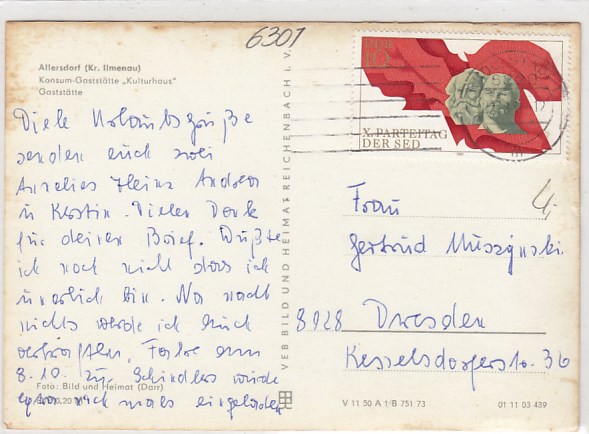 6301
Allersdorf (Kr. Ilmenau)
Konsum-Gaststätte „Kulturhaus"
Gaststätte
Viele Urlaubsgrüße
senden euch
Annelies Heinz Andrea
u Kerstin. Vielen Dank
für deinen Brief. Wußte
ich noch nicht dass ich
bin. Na macht
nichts werde ich euch
8.10. zu Schindlers würde
eingeladen
Foto: Bild und Heimat (Darr)
VEB BILD UND HEIMAT REICHENBACH I. V.
DDR
10
X. PARTEITAG
DER SED
Frau
Gertrud Muszynski
8028 Dresden
Kesselsdorferstr. 36
V 11 50 A 1/B 751 73 01 11 03 439